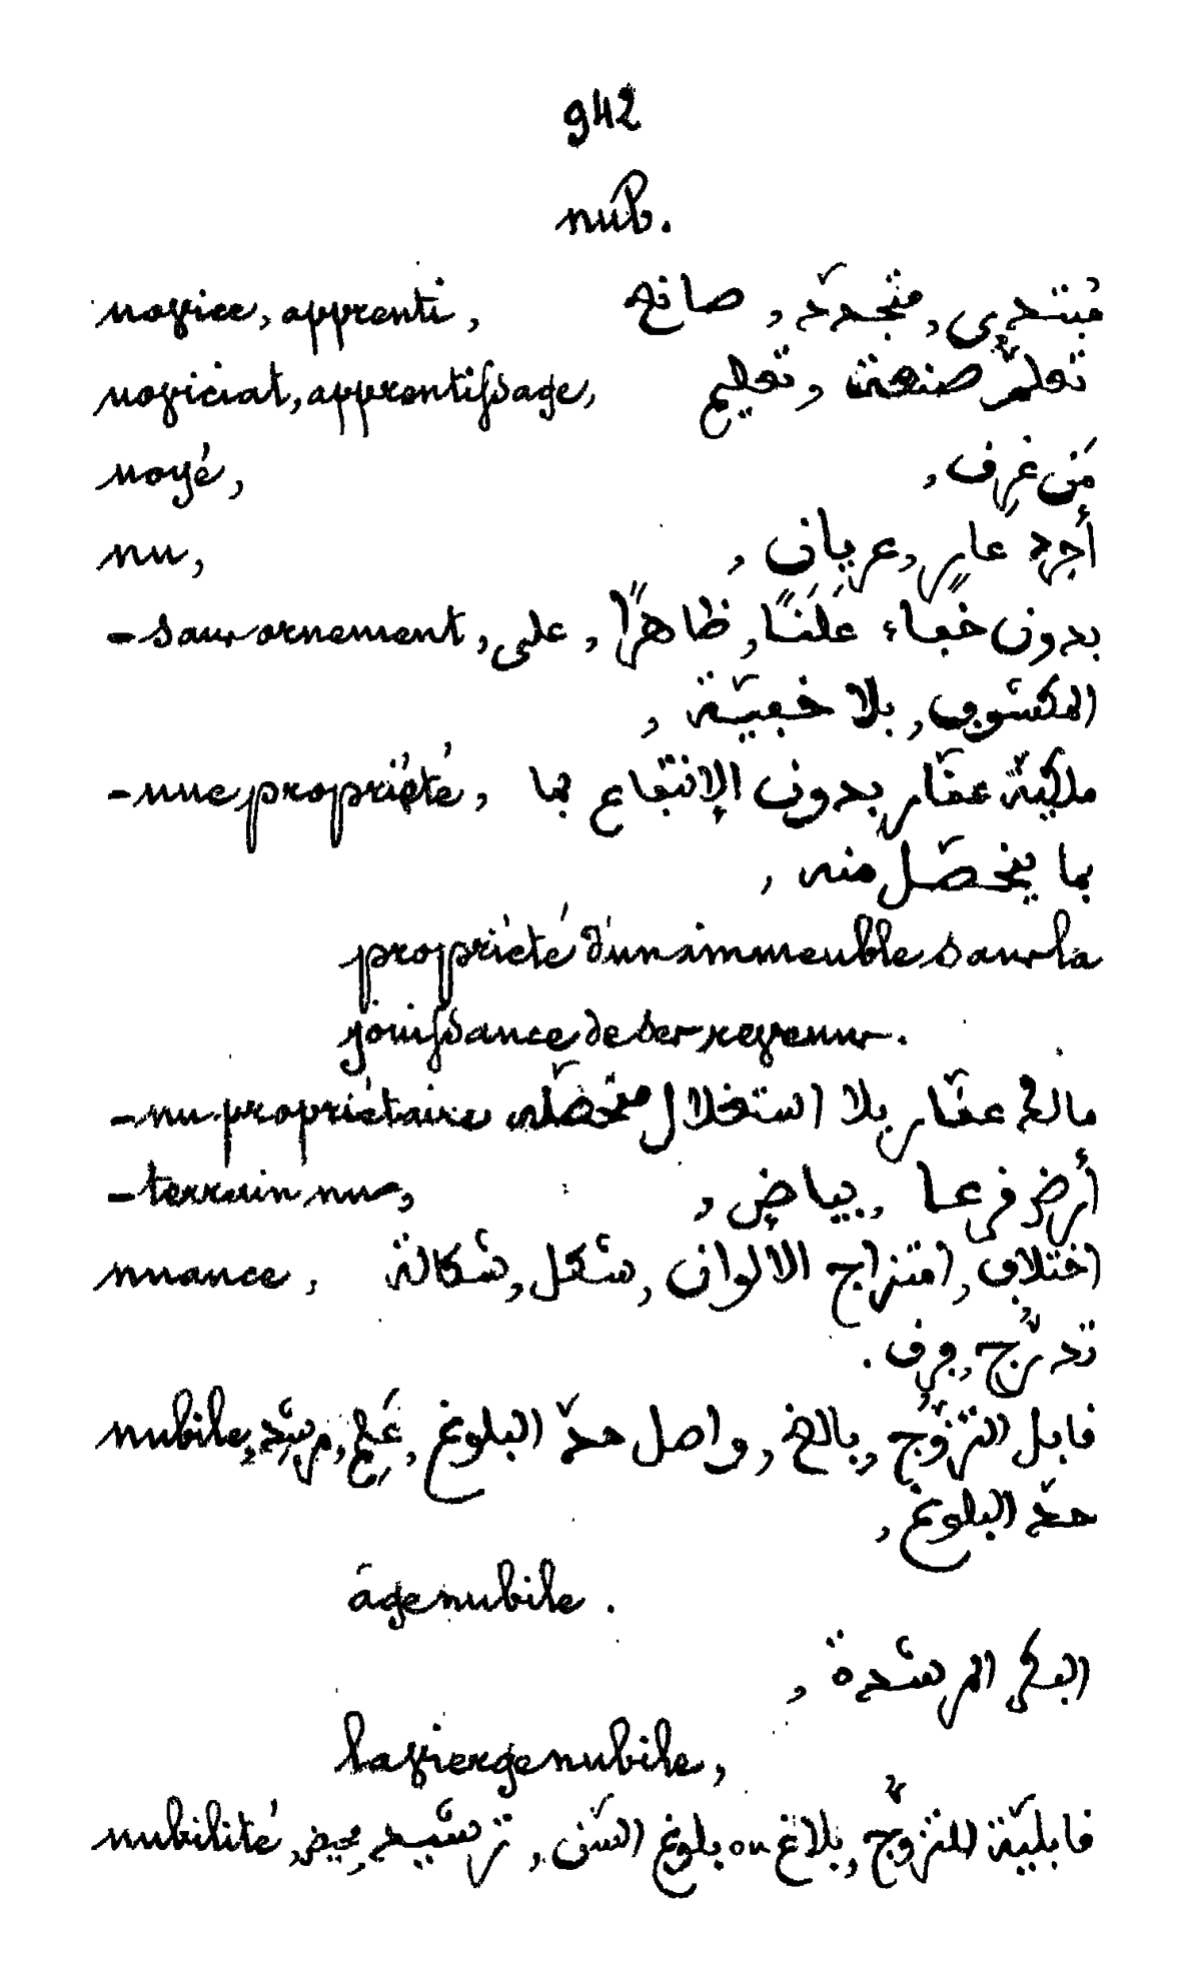 942
nub.
novice, apprenti, مُبتدى, متجدّد, صانع
noviciat, apprentissage, تعلّم صنعة, تعليم
noyé, مَن غرِق,
nu, أجرد عارٍ, عريان,
- sans ornement, بدون خفاء عَلَنًا, ظاهرًا, على
المكشوف, بلا خفيّة,
- nue propriété, ملكيّة عقّار بدون الإنتفاع بما
بما يتحصّل منه,
propriété d'un immeuble sans la
jouissance de ses revenus.
- nu-propriétaire مالك عقّار بلا استغلال متحصّله
- terrain nu, أرض فرعا, بياض,
nuance, اختلاف, امتزاج الالوان, شكل, شكالة
تدرّج, فرق.
nubile, قابل التزوّج, بالغ, واصل حدّ البلوغ,
حدّ البلوغ,
âge nubile.
البكر المرشدة,
la vierge nubile,
nubilité, قابليّة التزوّج, بلاغ ou بلوغ السّن, ترشيد,